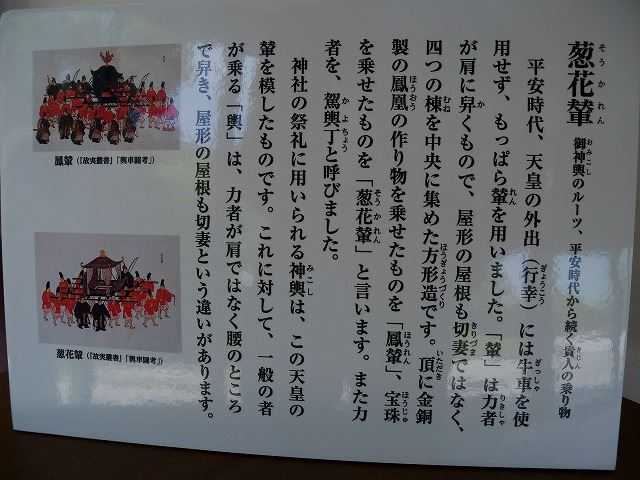 葱花輦 御神輿のルーツ、平安時代から続く貴人の乗り物
平安時代、天皇の外出（行幸）には牛車を使
用せず、もっぱら輦を用いました。「輦」は力者
が肩に舁くもので、屋形の屋根も切妻ではなく、
四つの棟を中央に集めた方形造です。頂に金銅
製の鳳凰の作り物を乗せたものを「鳳輦」、宝珠
を乗せたものを「葱花輦」と言います。また力
者を、駕輿丁と呼びました。
神社の祭礼に用いられる神輿は、この天皇の
輦を模したものです。これに対して、一般の者
が乗る「輿」は、力者が肩ではなく腰のところ
で舁き、屋形の屋根も切妻という違いがあります。
鳳輦（『故実叢書』「輿車圖考」）
葱花輦（『故実叢書』「輿車圖考」）